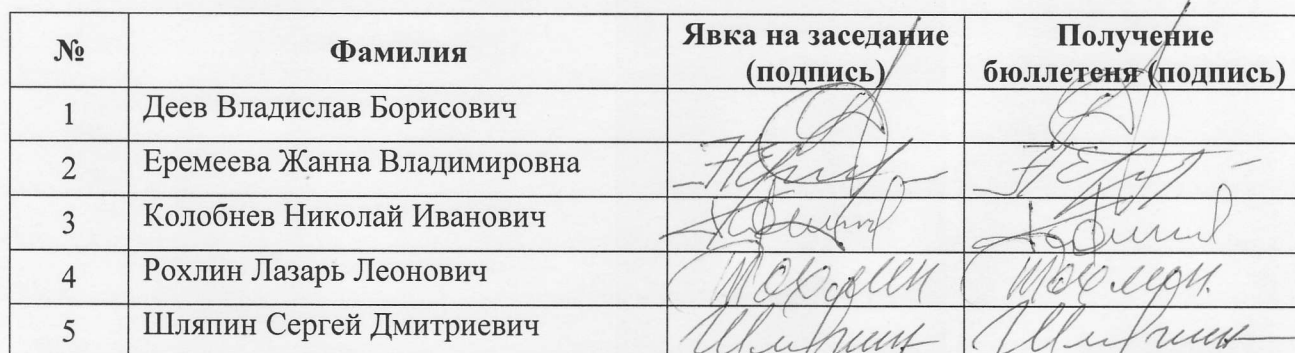 № Фамилия Явка на заседание (подпись) Получение бюллетеня (подпись)
1 Деев Владислав Борисович
2 Еремеева Жанна Владимировна
3 Колобнев Николай Иванович
4 Рохлин Лазарь Леонович
5 Шляпин Сергей Дмитриевич